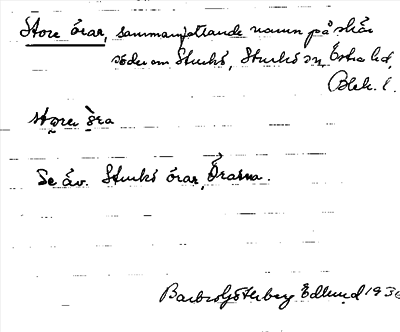 Store örar, sammanfattande namn på skär
söder om Sturkö, Sturkö sn, Östra hd,
Blek. l.
störe öra
Se äv. Sturkö örar, Örarna.
Barbro Göterberg Edlund 1936